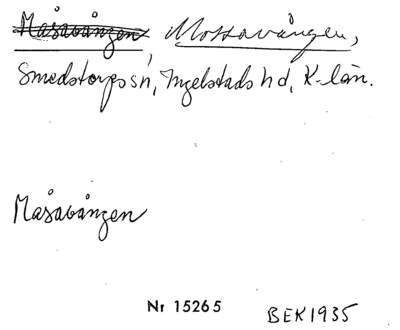 Måsavången Mossavången,
Smedstorps sn, Ingelstads hd, K-län.
Måsavången
Nr 15265 BEK 1935